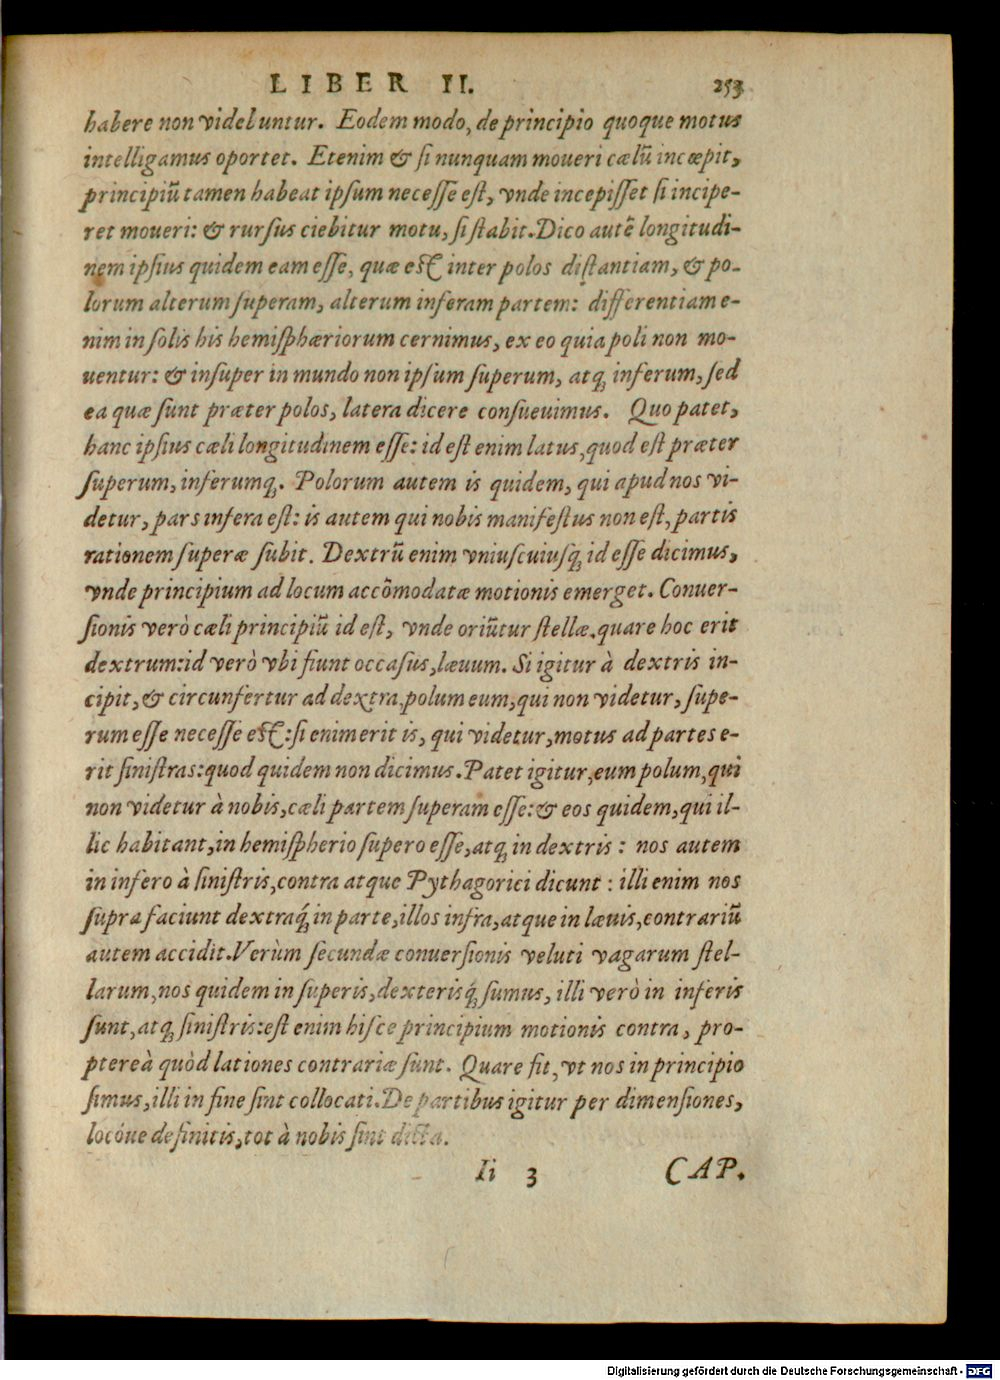 LIBER II. 253
habere non videbuntur. Eodem modo, de principio quoque motus
intelligamus oportet. Etenim & si nunquam moueri cælũ incœpit,
principiũ tamen habeat ipsum necesse est, vnde incepisset si incipe-
ret moueri: & rursus ciebitur motu, si stabit. Dico autẽ longitudi-
nem ipsius quidem eam esse, quæ est inter polos distantiam, & po-
lorum alterum superam, alterum inferam partem: differentiam e-
nim in solis his hemisphæriorum cernimus, ex eo quia poli non mo-
uentur: & insuper in mundo non ipsum superum, atq; inferum, sed
ea quæ sunt præter polos, latera dicere consueuimus. Quo patet,
hanc ipsius cæli longitudinem esse: id est enim latus, quod est præter
superum, inferumq;. Polorum autem is quidem, qui apud nos vi-
detur, pars infera est: is autem qui nobis manifestus non est, partis
rationem superæ subit. Dextrũ enim vniuscuiusq; id esse dicimus,
vnde principium ad locum accõmodatæ motionis emerget. Conuer-
sionis verò cæli principiũ id est, vnde oriũtur stellæ. quare hoc erit
dextrum: id verò vbi fiunt occasus, læuum. Si igitur à dextris in-
cipit, & circunfertur ad dextra, polum eum, qui non videtur, supe-
rum esse necesse est: si enim erit is, qui videtur, motus ad partes e-
rit sinistras: quod quidem non dicimus. Patet igitur, eum polum, qui
non videtur à nobis, cæli partem superam esse: & eos quidem, qui il-
lic habitant, in hemispherio supero esse, atq; in dextris: nos autem
in infero à sinistris, contra atque Pythagorici dicunt: illi enim nos
supra faciunt dextraq́; in parte, illos infra, atque in læuis, contrariũ
autem accidit. Verùm secundæ conuersionis veluti vagarum stel-
larum, nos quidem in superis, dexterisq́; sumus, illi verò in inferis
sunt, atq; sinistris: est enim hisce principium motionis contra, pro-
ptereà quòd lationes contrariæ sunt. Quare fit, vt nos in principio
simus, illi in fine sint collocati. De partibus igitur per dimensiones,
locóue definitis, tot à nobis sint dicta.
Ii 3 CAP.
Digitalisierung gefördert durch die Deutsche Forschungsgemeinschaft - DFG